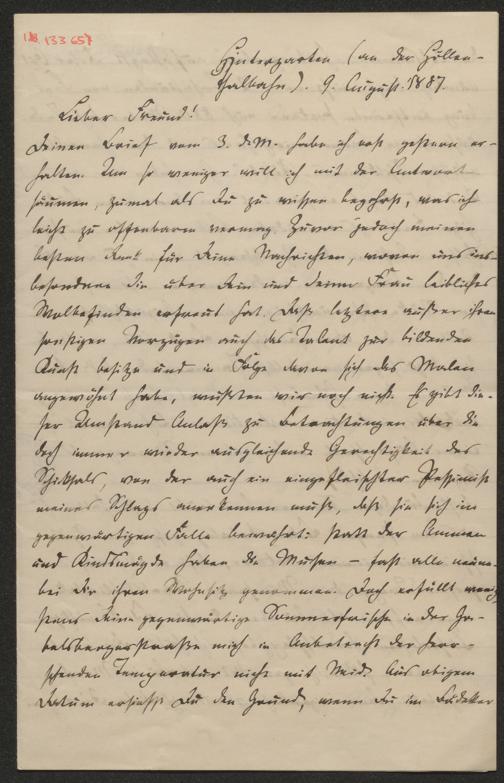 I.N. 133.657
Hinterzarten (an der Höllen-
thalbahn). 9. August. 1887.
Lieber Freund!
Deinen Brief vom 3. d. M. habe ich erst gestern er-
halten. Um so weniger will ich mit der Antwort
säumen, zumal als Du zu wissen begehrst, was ich
leicht zu offenbaren vermag. Zuvor jedoch meinen
besten Dank für Deine Nachrichten, wovon uns ins-
besondere die über Dein und Deiner Frau leibliches
Wolbefinden erfreut hat. Daß letztere außer ihren
sonstigen Vorzügen auch das Talent zur bildenden
Kunst besitze und in Folge davon sich das Malen
angewöhnt habe, wußten wir noch nicht. Es gibt die-
ser Umstand Anlaß zu Betrachtungen über die
doch immer wieder ausgleichende Gerechtigkeit des
Schicksals, von der auch ein eingefleischter Pessimist
meines Schlags anerkennen muß, daß sie sich im
gegenwärtigen Falle bewährt: statt der Ammen
und Kindsmägde haben die Musen – fast alle neune –
bei Dir ihren Wohnsitz genommen. Doch erfüllt wenig-
stens Deine gegenwärtige Sommerfrische in der Ga-
belsbergerstraße mich in Anbetracht der herr-
schenden Temperatur nicht mit Neid. Aus obigem
Datum ersiehst Du den Grund, wenn Du im Bädeker